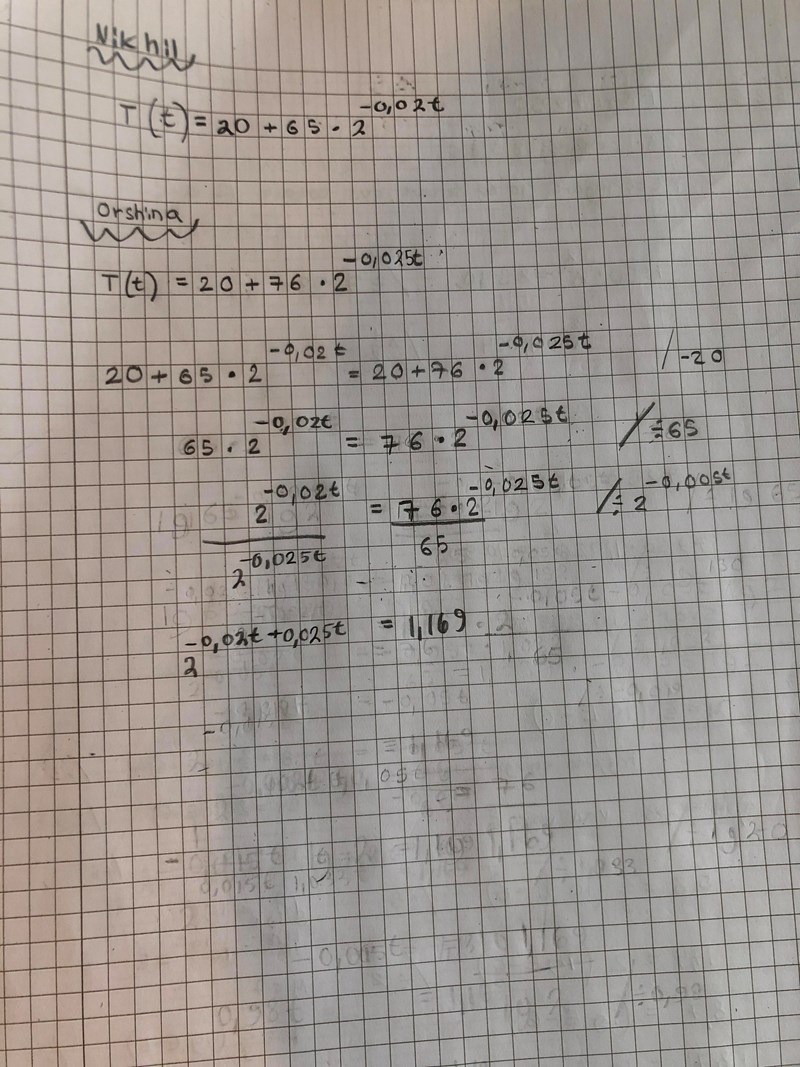 Nikhil
T(t) = 20 + 65 · 2^-0,02t
Orshina
T(t) = 20 + 76 · 2^-0,025t
20 + 65 · 2^-0,02t = 20 + 76 · 2^-0,025t /-20
65 · 2^-0,02t = 76 · 2^-0,025t /÷65
2^-0,02t / 2^-0,025t = 76 · 2^-0,025t / 65 /÷2^-0,005t
2^-0,02t+0,025t = 1,169